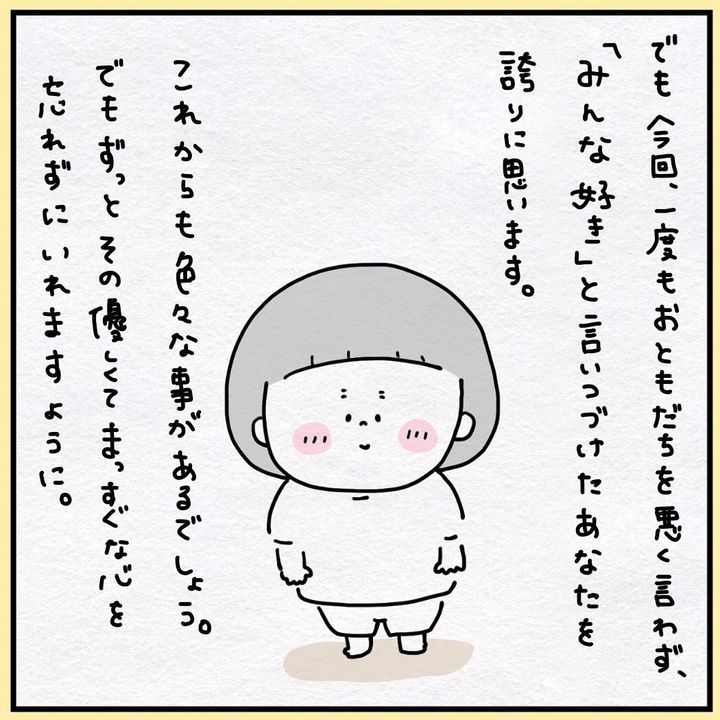 でも今回、一度もおともだちを悪く言わず、
「みんな好き」と言いつづけたあなたを
誇りに思います。
これからも色々な事があるでしょう。
でもずっとその優しくてまっすぐな心を
忘れずにいれますように。